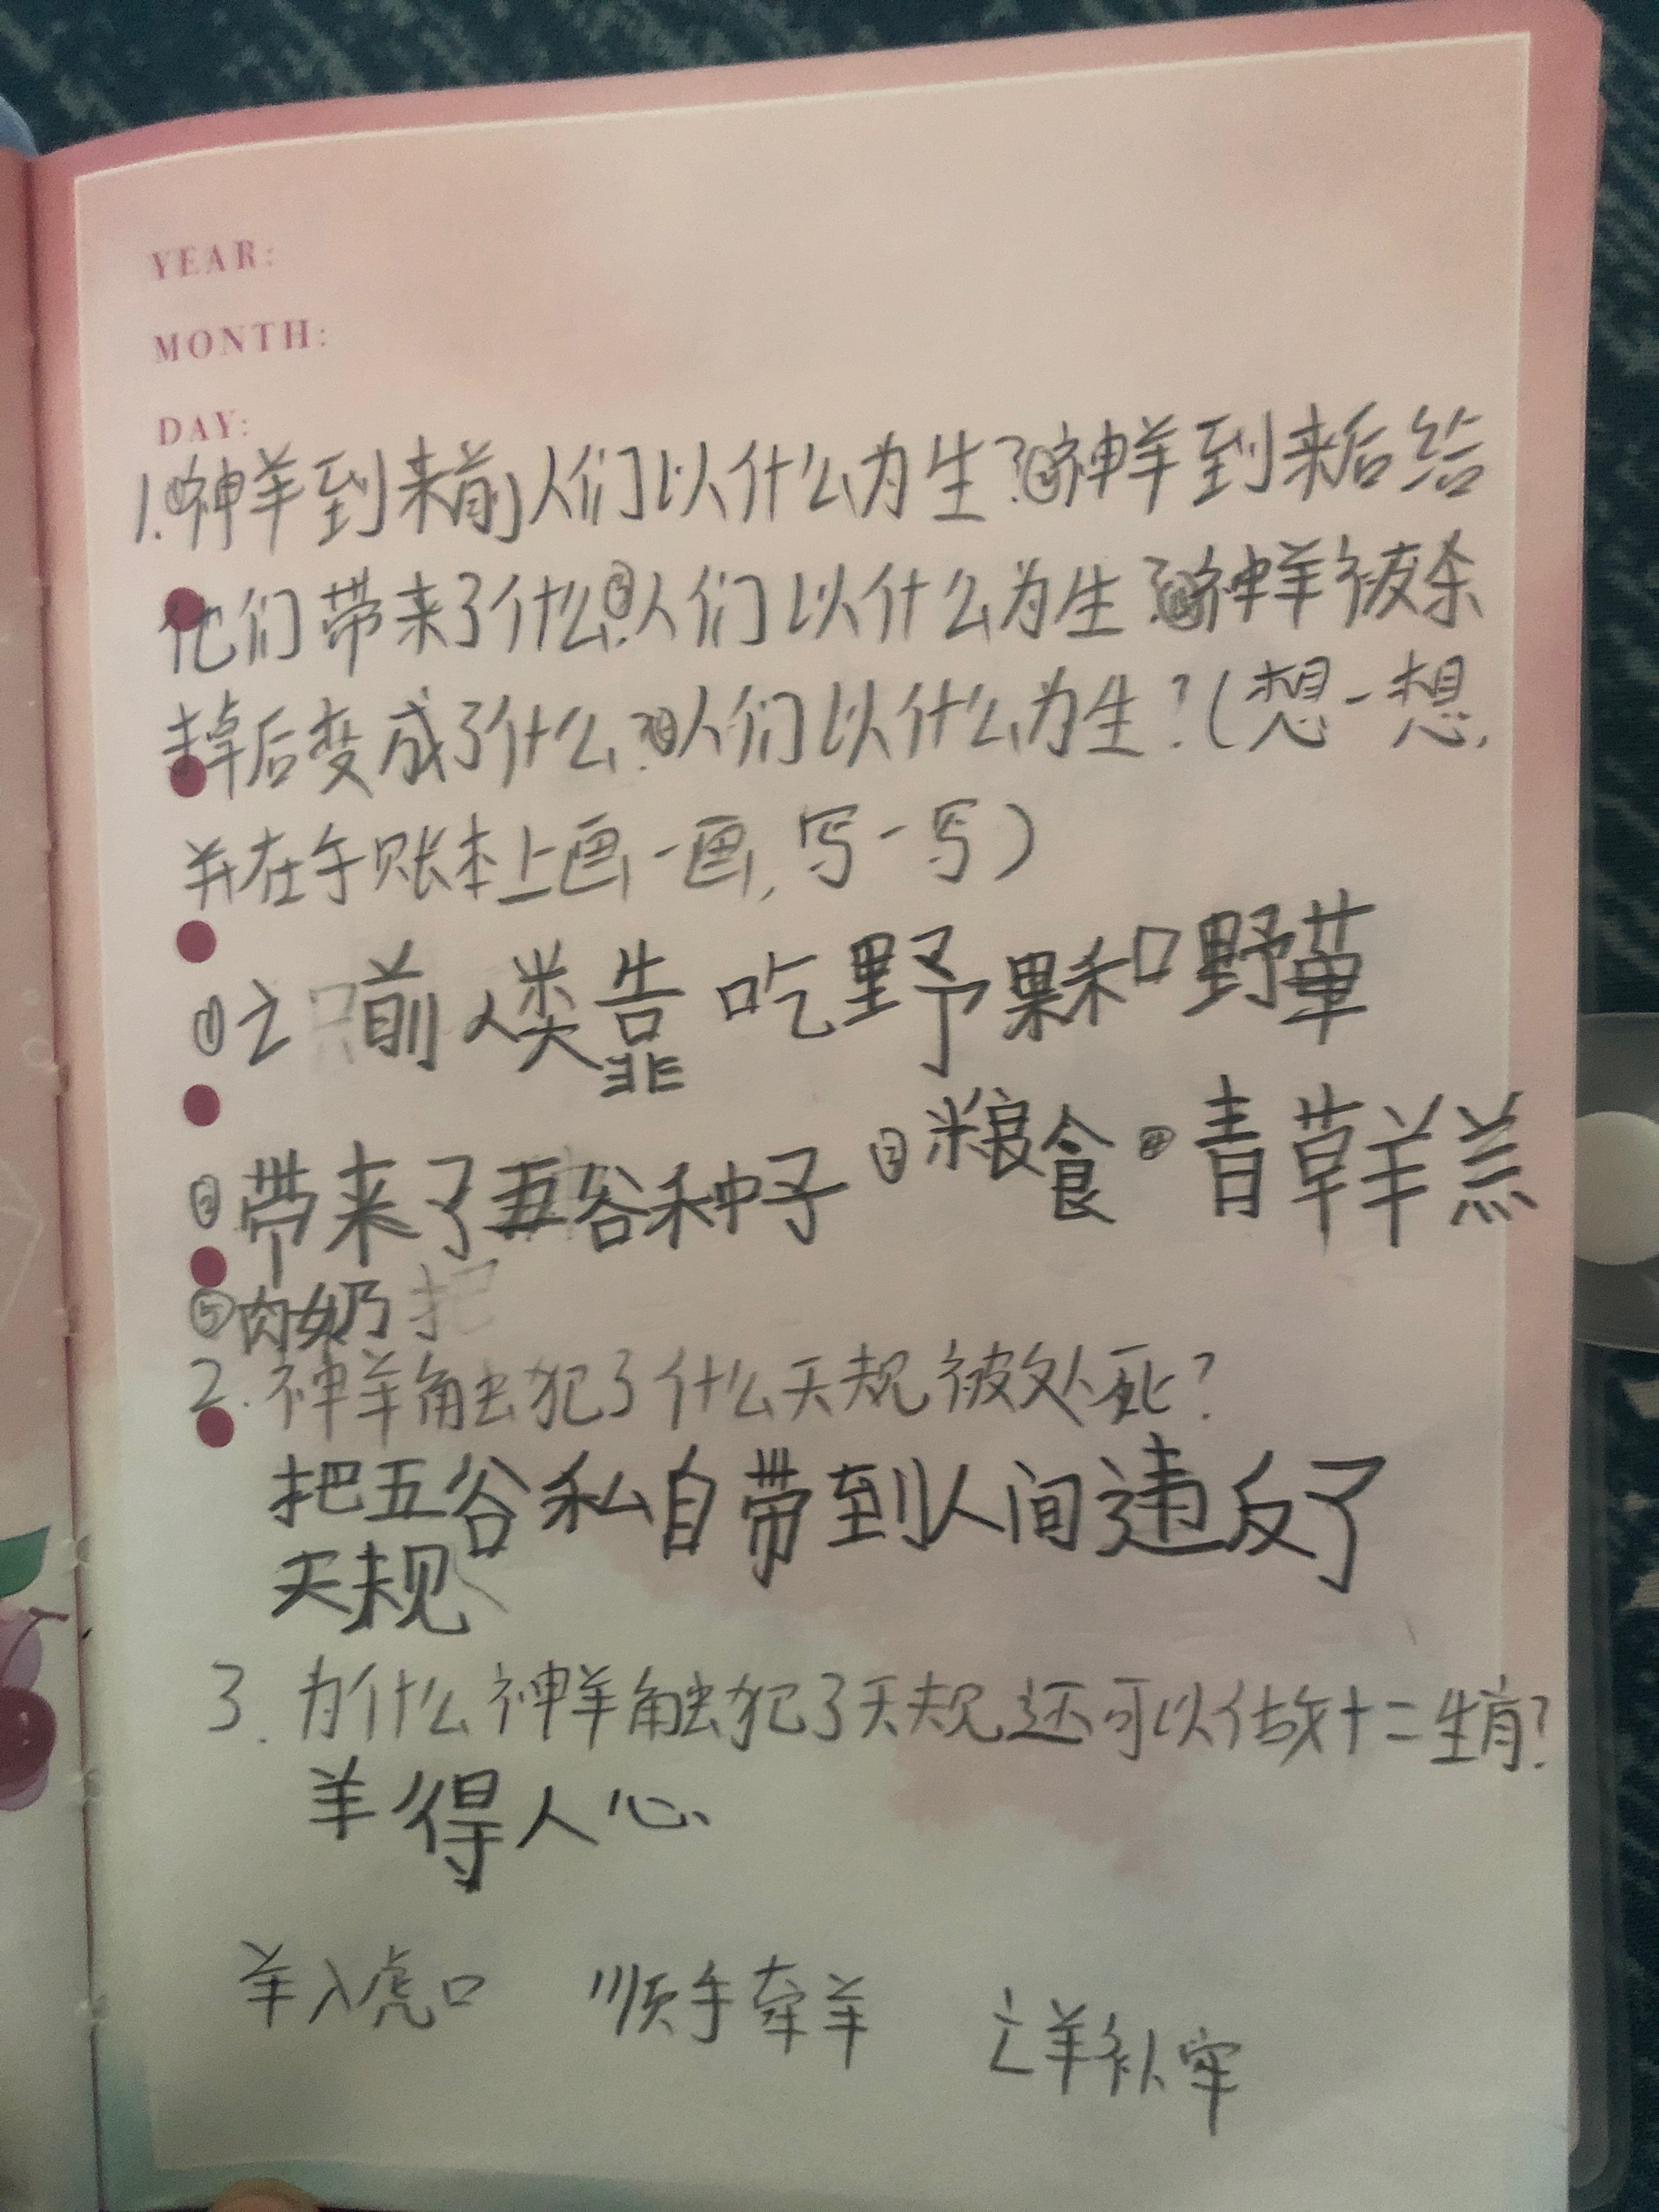 YEAR:
MONTH:
DAY:
1.①神羊到来前人们以什么为生?②神羊到来后给
他们带来了什么?③人们以什么为生?④神羊被杀
掉后变成了什么?⑤人们以什么为生?(想一想,
并在手账本上画一画,写一写)
①之前人类靠吃野果和野草
②带来了五谷种子③粮食④青草羊羔
⑤肉奶 把
2.神羊触犯了什么天规被处死?
把五谷私自带到人间违反了
天规
3.为什么神羊触犯了天规还可以做十二生肖?
羊得人心
羊入虎口 顺手牵羊 亡羊补牢